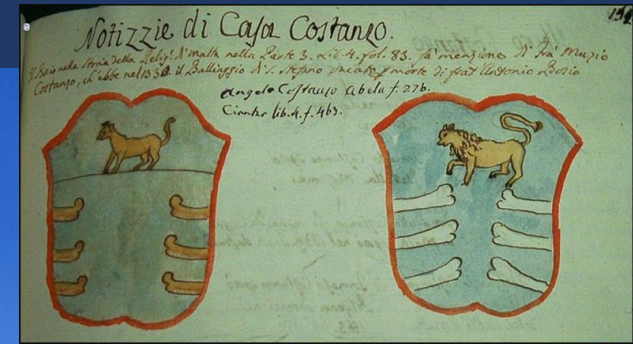 Notizzie di Casa Costanzo.
Bosio nella Storia della Relig.e di Malta nella Parte 3. Lib. 4. fol. 83. fa menzione di frà Muzio
Costanzo, ch'ebbe nel 1530 il Balliaggio di S. Stefano vacato p morte di frat Antonio Bosio
Angelo Costanzo Abela f. 276.
lib. 4. f. 463.